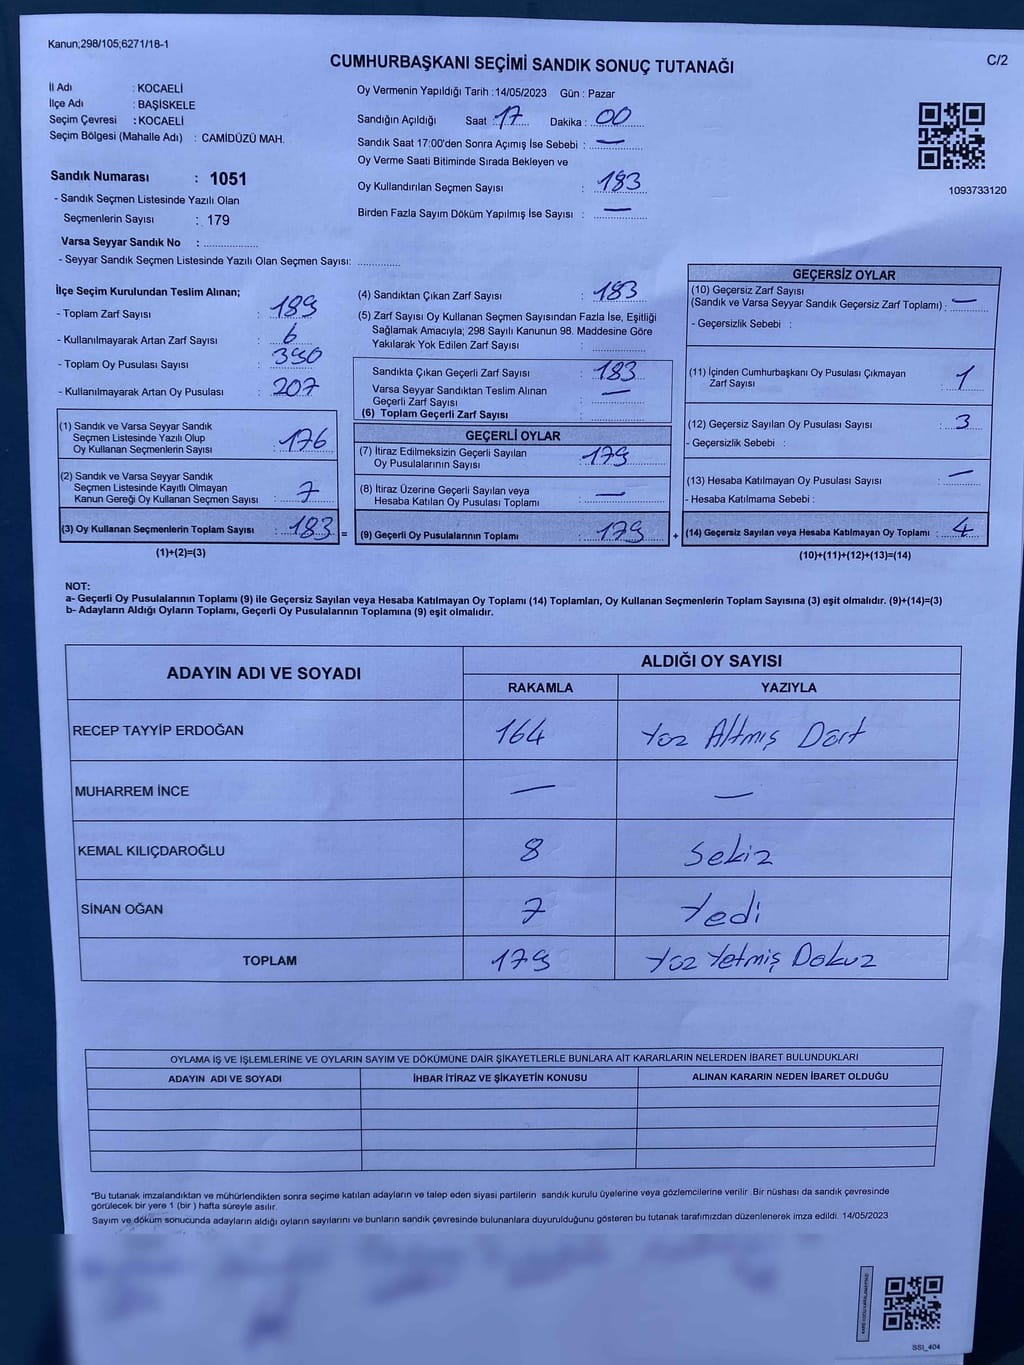 Kanun;298/105;6271/18-1
CUMHURBAŞKANI SEÇİMİ SANDIK SONUÇ TUTANAĞI
C/2
İl Adı : KOCAELİ
İlçe Adı : BAŞİSKELE
Seçim Çevresi : KOCAELİ
Seçim Bölgesi (Mahalle Adı) : CAMİDÜZÜ MAH.
Sandık Numarası : 1051
- Sandık Seçmen Listesinde Yazılı Olan
Seçmenlerin Sayısı : 179
Varsa Seyyar Sandık No :
- Seyyar Sandık Seçmen Listesinde Yazılı Olan Seçmen Sayısı:
Oy Vermenin Yapıldığı Tarih : 14/05/2023 Gün : Pazar
Sandığın Açıldığı Saat : 17 Dakika : 00
Sandık Saat 17:00'den Sonra Açımış İse Sebebi : —
Oy Verme Saati Bitiminde Sırada Bekleyen ve
Oy Kullandırılan Seçmen Sayısı : 183
Birden Fazla Sayım Döküm Yapılmış İse Sayısı : —
1093733120
İlçe Seçim Kurulundan Teslim Alınan;
- Toplam Zarf Sayısı : 189
- Kullanılmayarak Artan Zarf Sayısı : 6
- Toplam Oy Pusulası Sayısı : 390
- Kullanılmayarak Artan Oy Pusulası : 207
(1) Sandık ve Varsa Seyyar Sandık
Seçmen Listesinde Yazılı Olup
Oy Kullanan Seçmenlerin Sayısı : 176
(2) Sandık ve Varsa Seyyar Sandık
Seçmen Listesinde Kayıtlı Olmayan
Kanun Gereği Oy Kullanan Seçmen Sayısı : 7
(3) Oy Kullanan Seçmenlerin Toplam Sayısı : 183 =
(1)+(2)=(3)
(4) Sandıktan Çıkan Zarf Sayısı : 183
(5) Zarf Sayısı Oy Kullanan Seçmen Sayısından Fazla İse, Eşitliği
Sağlamak Amacıyla; 298 Sayılı Kanunun 98. Maddesine Göre
Yakılarak Yok Edilen Zarf Sayısı :
Sandıkta Çıkan Geçerli Zarf Sayısı : 183
Varsa Seyyar Sandıktan Teslim Alınan
Geçerli Zarf Sayısı : —
(6) Toplam Geçerli Zarf Sayısı :
GEÇERLİ OYLAR
(7) İtiraz Edilmeksizin Geçerli Sayılan
Oy Pusulalarının Sayısı : 179
(8) İtiraz Üzerine Geçerli Sayılan veya
Hesaba Katılan Oy Pusulası Toplamı : —
(9) Geçerli Oy Pusulalarının Toplamı : 179 +
GEÇERSİZ OYLAR
(10) Geçersiz Zarf Sayısı
(Sandık ve Varsa Seyyar Sandık Geçersiz Zarf Toplamı) : —
- Geçersizlik Sebebi :
(11) İçinden Cumhurbaşkanı Oy Pusulası Çıkmayan
Zarf Sayısı : 1
(12) Geçersiz Sayılan Oy Pusulası Sayısı : 3
- Geçersizlik Sebebi :
(13) Hesaba Katılmayan Oy Pusulası Sayısı : —
- Hesaba Katılmama Sebebi :
(14) Geçersiz Sayılan veya Hesaba Katılmayan Oy Toplamı : 4
(10)+(11)+(12)+(13)=(14)
NOT:
a- Geçerli Oy Pusulalarının Toplamı (9) ile Geçersiz Sayılan veya Hesaba Katılmayan Oy Toplamı (14) Toplamları, Oy Kullanan Seçmenlerin Toplam Sayısına (3) eşit olmalıdır. (9)+(14)=(3)
b- Adayların Aldığı Oyların Toplamı, Geçerli Oy Pusulalarının Toplamına (9) eşit olmalıdır.
ADAYIN ADI VE SOYADI ALDIĞI OY SAYISI
RAKAMLA YAZIYLA
RECEP TAYYİP ERDOĞAN 164 Yüz Altmış Dört
MUHARREM İNCE — —
KEMAL KILIÇDAROĞLU 8 Sekiz
SİNAN OĞAN 7 Yedi
TOPLAM 179 Yüz Yetmiş Dokuz
OYLAMA İŞ VE İŞLEMLERİNE VE OYLARIN SAYIM VE DÖKÜMÜNE DAİR ŞİKAYETLERLE BUNLARA AİT KARARLARIN NELERDEN İBARET BULUNDUKLARI
ADAYIN ADI VE SOYADI İHBAR İTİRAZ VE ŞİKAYETİN KONUSU ALINAN KARARIN NEDEN İBARET OLDUĞU
*Bu tutanak imzalandıktan ve mühürlendikten sonra seçime katılan adayların ve talep eden siyasi partilerin sandık kurulu üyelerine veya gözlemcilerine verilir .Bir nüshası da sandık çevresinde
görülecek bir yere 1 (bir ) hafta süreyle asılır.
Sayım ve döküm sonucunda adayların aldığı oyların sayılarını ve bunların sandık çevresinde bulunanlara duyurulduğunu gösteren bu tutanak tarafımızdan düzenlenerek imza edildi. 14/05/2023
SSI_404